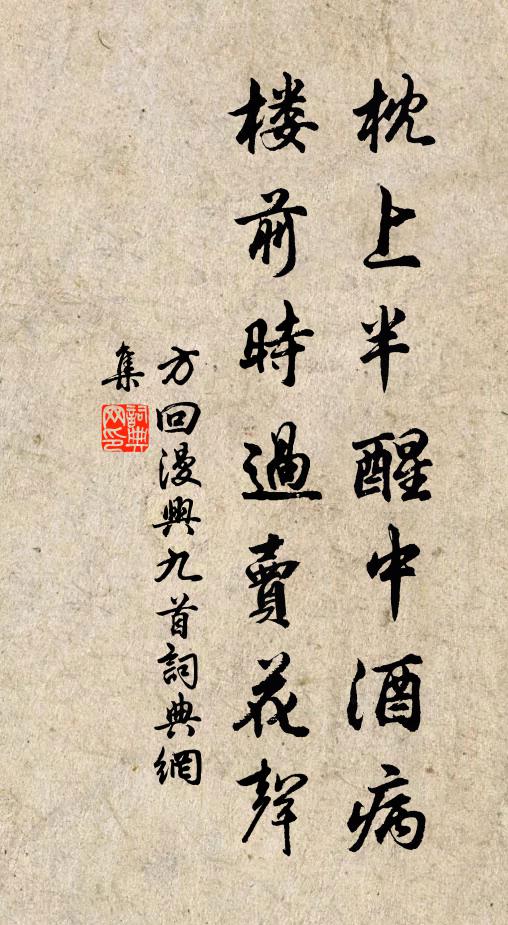 枕上半醒中酒病
楼前時過賣花聲
方回漫興九首詞典網
集
詞典
网印